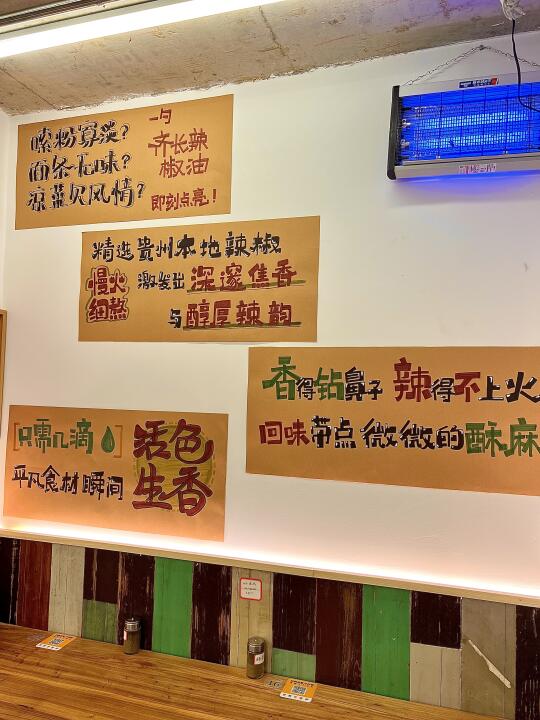 嗦粉寡淡?
面条无味?
凉菜欠风情?
一勺
齐长辣
椒油
即刻点亮!
精选贵州本地辣椒
慢火
细熬
激发出深邃焦香
与醇厚辣韵
香得钻鼻子 辣得不上火
回味带点微微的酥麻
[只需几滴]
平凡食材瞬间
活色
生香
16